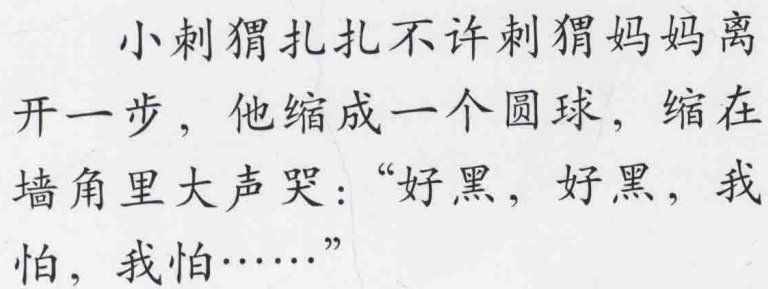 小刺猬扎扎不许刺猬妈妈离
开一步，他缩成一个圆球，缩在
墙角里大声哭：“好黑，好黑，我
怕，我怕……”